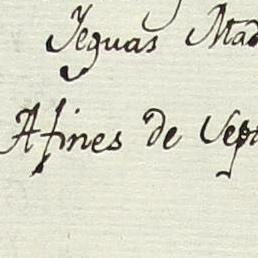 Yeguas Mad
A fines de Sep